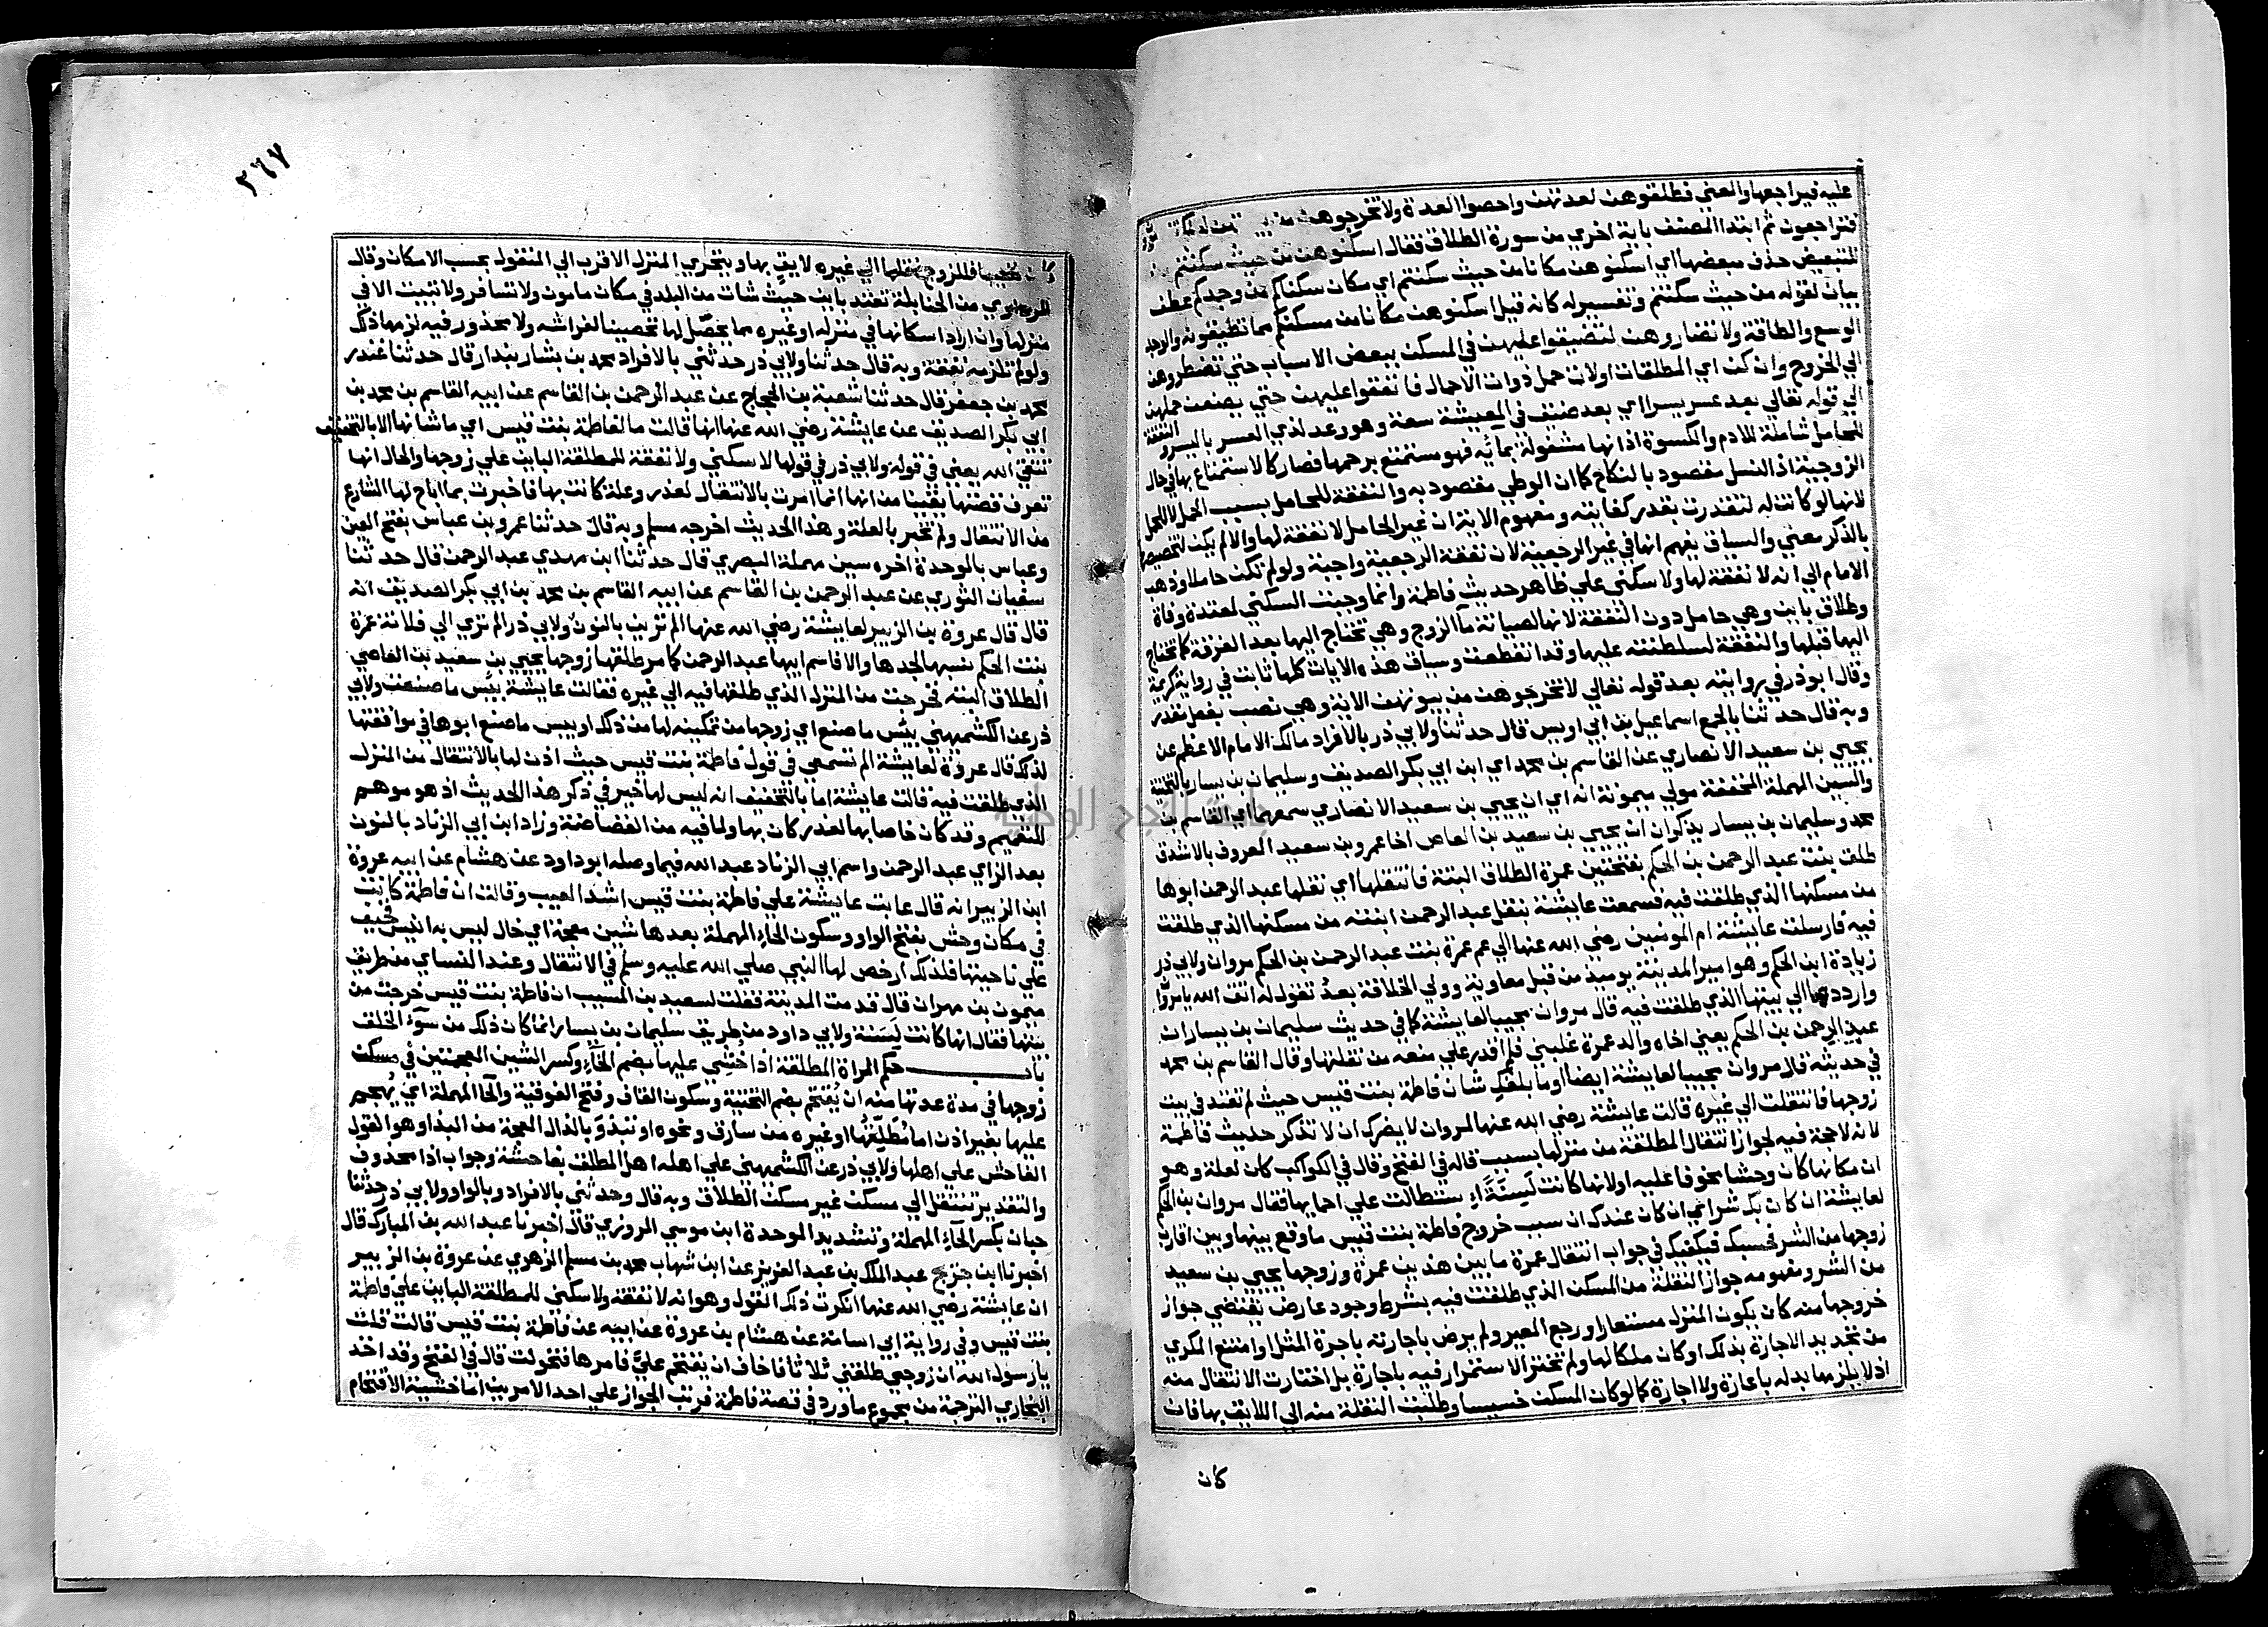 عليه فيراجعها والمعني فطلقوهن لعدتهن واحصوا العدة ولا تخرجوهن من
فتراجعون ثم ابتدا المصنف باية اخري من سورة الطلاق فقال اسكنوهن من حيث سكنتم
للتبعيض حذف مبعضها اي اسكنوهن مكانا من حيث سكنتم اي مكان سكناكم من وجدكم عطف
بيان لقوله من حيث سكنتم وتفسير له كانه قيل اسكنوهن مكانا من مسكنكم مما تطيقونه والوجد
الوسع والطاقة ولا تضاروهن لتضيقوا عليهن في المسكن ببعض الاسباب حتي تضطروهن
الي الخروج وان كن اي المطلقات اولات حمل ذوات الاحمال فانفقوا عليهن حتي يضعن حملهن
الي قوله تعالي بعد عسر يسرا اي بعد ضيق في المعيشة سعة وهو وعد لذي العسر باليسر والنفقة
للحامل شاملة للادم والكسوة اذ انها مشغولة بمائه فهو مستمتع برحمها فصار كالاستمتاع بها في حال
الزوجية اذ النسل مقصود بالنكاح كما ان الوطي مقصود به والنفقة للحامل بسبب الحمل لا للحمل
لانها لو كانت له لتقدرت بقدر كفايته ومفهوم الاية ان غير الحامل لا نفقة لها والا لم يكن لتخصيصها
بالذكر معني والسياق يفهم انها في غير الرجعية لان نفقة الرجعية واجبة ولو لم تكن حاملا وذهب
الامام الي انه لا نفقة لها ولا سكني علي ظاهر حديث فاطمة وانما وجبت السكني لمعتدة وفاة
وطلاق باين وهي حامل دون النفقة لانها لصيانة ماء الزوج وهي تحتاج اليها بعد الفرقة كما تحتاج
اليها قبلها والنفقة لسلطنته عليها وقد انقطعت وسياق هذه الايات كلها ثابت في رواية كريمة
وقال ابو ذر في روايته بعد قوله تعالي لا تخرجوهن من بيوتهن الاية وهي نصب بفعل مقدر
وبه قال حدثنا بالجمع اسماعيل بن ابي اويس قال حدثنا ولابي ذر بالافراد مالك الامام الاعظم عن
يحيي بن سعيد الانصاري عن القاسم بن محمد اي ابن ابي بكر الصديق وسليمان بن يسار بالتحتية
والسين المهملة المخففة مولي ميمونة انه اي ان يحيي بن سعيد الانصاري سمعهما اي القاسم بن
محمد وسليمان بن يسار يذكران ان يحيي بن سعيد بن العاص اخا عمرو بن سعيد المعروف بالاشدق
طلق بنت عبد الرحمن بن الحكم بفتحتين عمرة الطلاق البتة فانتقلها اي نقلها عبد الرحمن ابوها
من مسكنها الذي طلقت فيه فسمعت عايشة بنقل عبد الرحمن ابنته من مسكنها الذي طلقت
فيه فارسلت عايشة ام المومنين رضي الله عنها الي عم عمرة بنت عبد الرحمن بن الحكم مروان ولابي ذر
زيادة ابن الحكم وهو امير المدينة يوميذ من قبل معاوية وولي الخلافة بعد تقول له اتق الله يا مروان
وارددها الي بيتها الذي طلقت فيه قال مروان مجيبا لعايشة كما في حديث سليمان بن يسار ان
عبد الرحمن بن الحكم يعني اخاه والد عمرة غلبني فلم اقدر علي منعه من نقلتها وقال القاسم بن محمد
في حديثه قال مروان مجيبا لعايشة ايضا او ما بلغك شان فاطمة بنت قيس حيث لم تعتد في بيت
زوجها فانتقلت الي غيره قالت عايشة رضي الله عنها لمروان لا يضرك ان لا تذكر حديث فاطمة
لانه لا حجة فيه لجواز انتقال المطلقة من منزلها بسبب قاله في الفتح وقال في الكواكب كان لعلة وهو
ان مكانها كان وحشا مخوفا عليه او لانها كانت لسنة استطالت علي احمايها فقال مروان بن الحكم
لعايشة ان كان بك شر اي ان كان عندك ان سبب خروج فاطمة بنت قيس ما وقع بينها وبين اقارب
زوجها من الشر فحسبك فيكفيك في جواب انتقال عمرة ما بين هذين عمرة وزوجها يحيي بن سعيد
من الشر ومفهومه جواز النقلة من المسكن الذي طلقت فيه بشرط وجود عارض يقتضي جواز
خروجها منه كان يكون المنزل مستعارا ورجع المعير ولم يرض باجارته باجرة المثل او امتنع المكري
من تجديد الاجارة بذلك او كان ملكا لها ولم تختر الاستمرار فيه باجارة بل اختارت الانتقال منه
اذ لا يلزمها بدله باعارة ولا اجارة كما لو كان المسكن خسيسا وطلبت النقلة منه الي اللايق بها فان
كان
٢٦٧
كان نفيسا فللزوج نقلها الي غيره لايق بها ويتحري المنزل الاقرب الي المنقول بحسب الامكان وقال
المرداوي من الحنابلة تعتد باين حيث شات من البلد في مكان مامون ولا تسافر ولا تبيت الا في
منزلها وان اراد اسكانها في منزله او غيره مما يحصل لها تحصينا لفراشه ولا محذور فيه لزمها ذلك
ولو لم تلزمه نفقة وبه قال حدثنا ولابي ذر حدثني بالافراد محمد بن بشار بندار قال حدثنا غندر
محمد بن جعفر قال حدثنا شعبة بن الحجاج عن عبد الرحمن بن القاسم عن ابيه القاسم بن محمد بن
ابي بكر الصديق عن عايشة رضي الله عنها انها قالت ما لفاطمة بنت قيس اي ما شانها الا بالتخفيف
تتقي الله يعني في قوله ولابي ذر في قولها لا سكني ولا نفقة للمطلقة الباين علي زوجها والحال انها
تعرف قصتها يقينا من انها انما امرت بالانتقال لعذر وعلة كانت بها فاخبرت بما اباح لها الشارع
من الانتقال ولم تخبر بالعلة وهذا الحديث اخرجه مسلم وبه قال حدثنا عمرو بن عباس بفتح العين
وعباس بالوحدة اخره سين مهملة البصري قال حدثنا ابن مهدي عبد الرحمن قال حدثنا
سفيان الثوري عن عبد الرحمن بن القاسم عن ابيه القاسم بن محمد بن ابي بكر الصديق انه
قال قال عروة بن الزبير لعايشة رضي الله عنها الم ترين بالنون ولابي ذر الم تري الي فلانة عمرة
بنت الحكم نسبها لجدها والا فاسم ابيها عبد الرحمن كما مر طلقها زوجها يحيي بن سعيد بن العاصي
الطلاق البتة فخرجت من المنزل الذي طلقها فيه الي غيره فقالت عايشة بيس ما صنعت ولابي
ذر عن الكشميهني بيس ما صنع اي زوجها من تمكينه لها من ذلك او بيس ما صنع ابوها في موافقتها
لذلك قال عروة لعايشة الم تسمعي في قول فاطمة بنت قيس حيث اذن لها بالانتقال من المنزل
الذي طلقت فيه قالت عايشة اما بالتخفيف انه ليس لها خير في ذكر هذا الحديث اذ هو موهم
للتعميم وقد كان خاصا بها لعذر كان بها ولما فيه من الغضاضة وزاد ابن ابي الزناد بالنون
بعد الزاي عبد الرحمن واسم ابي الزناد عبد الله فيما وصله ابو داود عن هشام عن ابيه عروة
ابن الزبير انه قال عابت عايشة علي فاطمة بنت قيس اشد العيب وقالت ان فاطمة كانت
في مكان وحش بفتح الواو وسكون الحاء المهملة بعدها شين معجمة اي خال ليس به انيس فخيف
علي ناحيتها فلذلك ارخص لها النبي صلي الله عليه وسلم في الانتقال وعند النساي من طريق
ميمون بن مهران قال قدمت المدينة فقلت لسعيد بن المسيب ان فاطمة بنت قيس خرجت من
بيتها فقال انها كانت لسنة ولابي داود من طريق سليمان بن يسار انما كان ذلك من سوء الخلق
باب حكم المراة المطلقة اذا خشي عليها بضم الخاء وكسر الشين المعجمتين في مسكن
زوجها في مدة عدتها منه ان يقتحم بضم التحتية وسكون القاف وفتح الفوقية والحا المهملة اي يهجم
عليها بغير اذن اما مطلقها او غيره من سارق ونحوه او تبذو بالذال المعجمة من البذا وهو القول
الفاحش علي اهلها ولابي ذر عن الكشميهني علي اهله اهل المطلق بفاحشة وجواب اذا محذوف
والتقدير تنتقل الي مسكن غير مسكن الطلاق وبه قال وحدثني بالافراد وبالواو ولابي ذر حدثنا
حبان بكسر الحاء المهملة وتشديد الموحدة ابن موسي المروزي قال اخبرنا عبد الله بن المبارك قال
اخبرنا ابن جريج عبد الملك بن عبد العزيز عن ابن شهاب محمد بن مسلم الزهري عن عروة بن الزبير
ان عايشة رضي الله عنها انكرت ذلك القول وهو انه لا نفقة ولا سكني للمطلقة الباين علي فاطمة
بنت قيس وفي رواية ابي اسامة عن هشام بن عروة عن ابيه عن فاطمة بنت قيس قالت قلت
يا رسول الله ان زوجي طلقني ثلاثا فاخاف ان يقتحم علي فامرها فتحولت قال في الفتح وقد اخذ
البخاري الترجمة من مجموع ما ورد في قصة فاطمة فرتب الجواز علي احد الامرين اما خشية الاقتحام